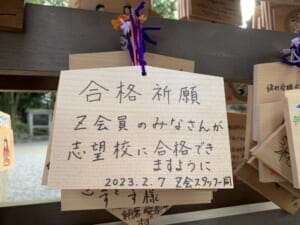 合格祈願
Z会員のみなさんが
志望校に合格でき
ますように
2023.2.7 Z会スタッフ一同